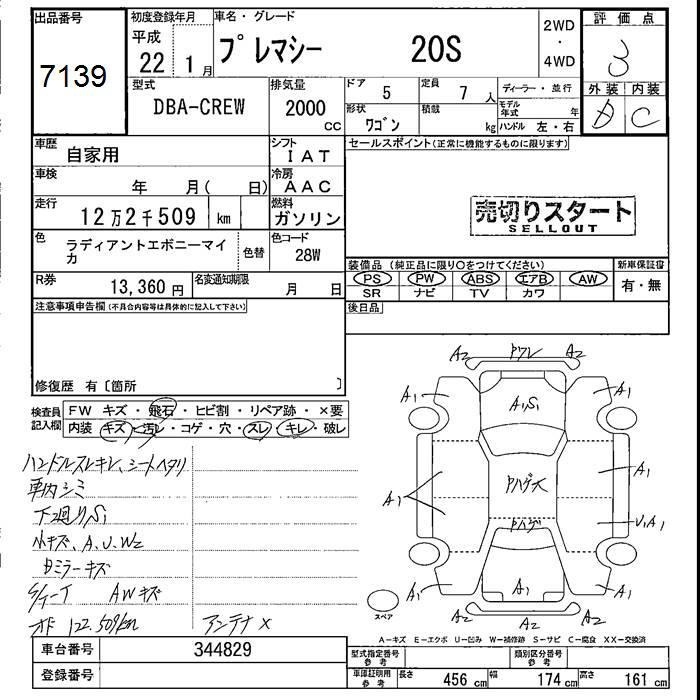 出品番号
7139
初度登録年月
平成
22 1月
車名・グレード
プレマシー 20S
2WD
・
4WD
評価点
3
外装 内装
D C
型式
DBA-CREW
排気量
2000
cc
ドア 5
定員 7人
形状 ワゴン
積載 kg
ディーラー・並行
モデル年式 年
ハンドル 左・右
車歴
自家用
シフト
IAT
車検
年 月( 日)
冷房
AAC
走行
12万2千509 km
燃料
ガソリン
色
ラディアントエボニーマイ
カ
色替
色コード
28W
R券
13,360円
名変通知期限
月 日
セールスポイント(正常に機能するものに限ります)
売切りスタート
SELLOUT
装備品(純正品に限り○をつけてください)
PS PW ABS エアB AW
SR ナビ TV カワ
新車保証書
有・無
後日品
注意事項申告欄(不具合内容等は具体的に記入して下さい)
修復歴 有〔箇所 〕
検査員
記入欄
FW キズ・飛石・ヒビ割・リペア跡・×要
内装 キズ・汚レ・コゲ・穴・スレ・キレ・破レ
ハンドルスレキレ、シートヘタリ
車内シミ
下廻りS1
小キズ、A、U、W2
Dミラーキズ
AWキズ
122,509km
アンテナ×
A2 PワレA2
A1 A1S1 A1
A1 PハゲX A1
Pハゲ U1A1
A1 A1 A1
A2 A2
スペア
A-キズ E-エクボ U-凹み W-補修跡 S-サビ C-腐食 XX-交換済
車台番号 344829
登録番号
型式指定番号
参考
類別区分番号
参考
車庫証明用
参考
長さ 456cm 幅 174cm 高さ 161cm